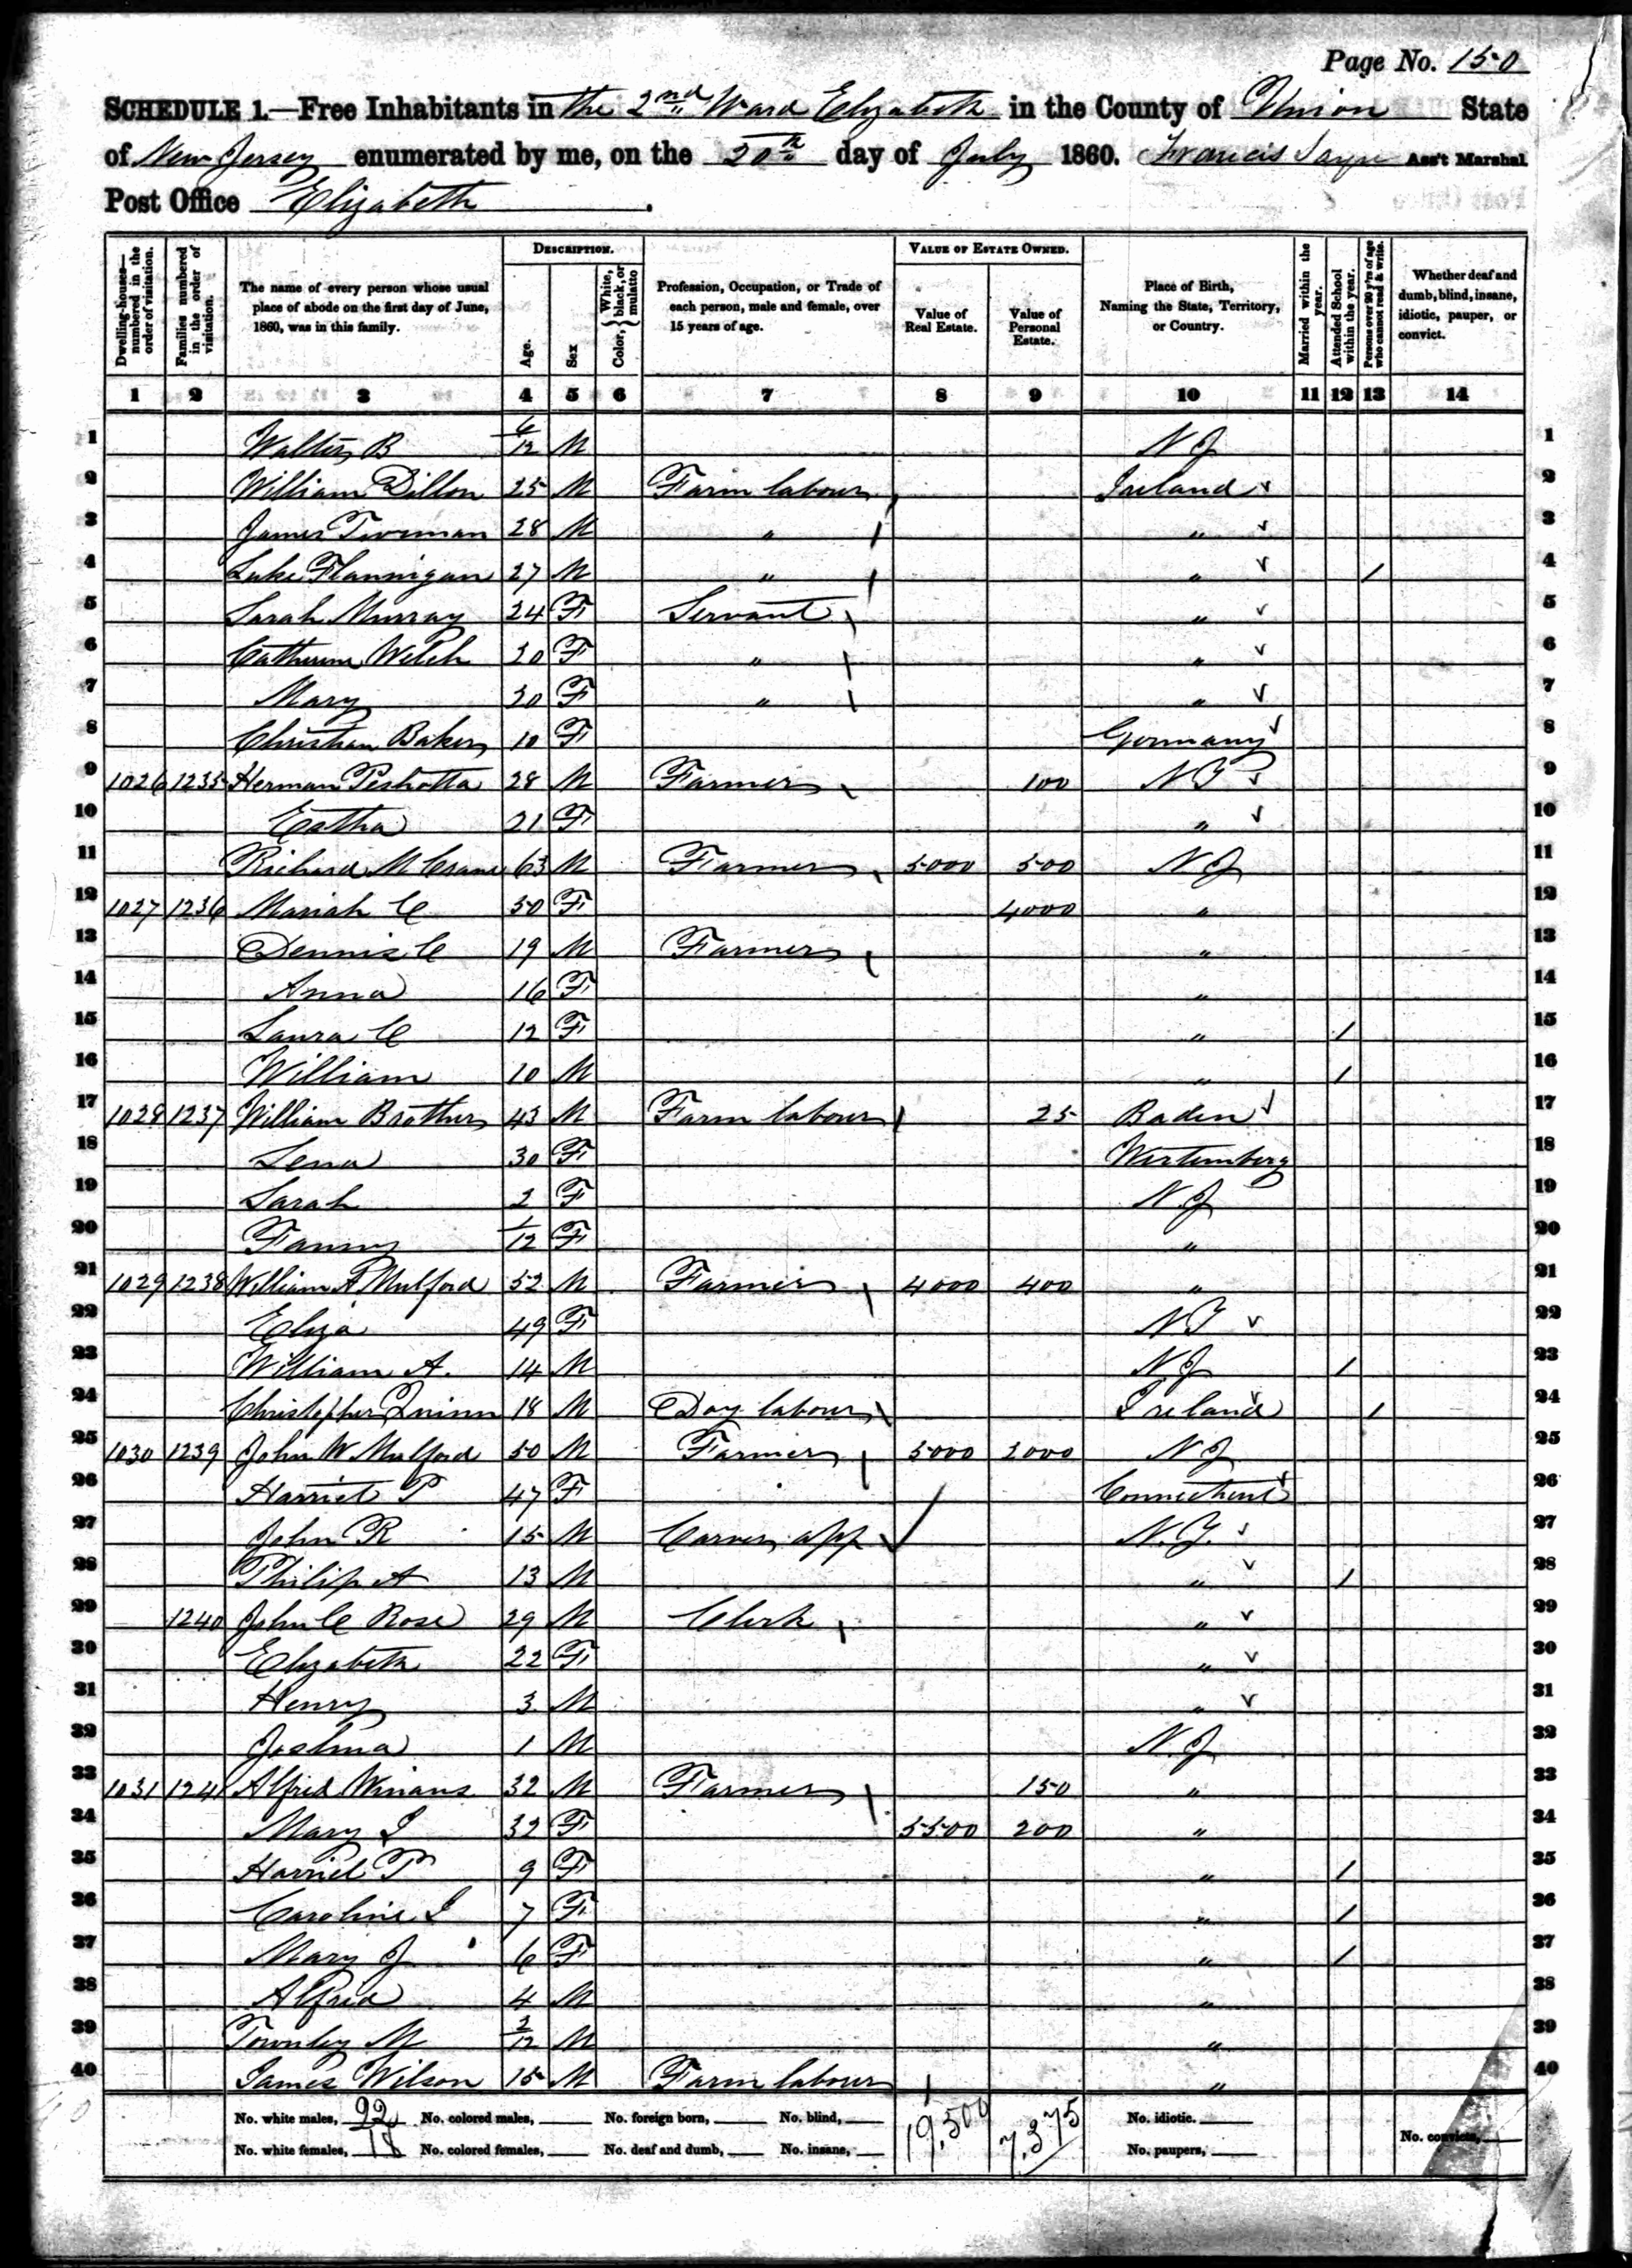 Page No. 150
SCHEDULE 1.—Free Inhabitants in the 2nd Ward Elizabeth in the County of Union State
of New Jersey enumerated by me, on the 20th day of July 1860. Francis Sayre Ass't Marshal
Post Office Elizabeth.
Dwelling-houses—numbered in the order of visitation. Families numbered in the order of visitation. The name of every person whose usual place of abode on the first day of June, 1860, was in this family. DESCRIPTION. Age. Sex Color, White, black, or mulatto Profession, Occupation, or Trade of each person, male and female, over 15 years of age. VALUE OF ESTATE OWNED. Value of Real Estate. Value of Personal Estate. Place of Birth, Naming the State, Territory, or Country. Married within the year. Attended School within the year. Persons over 20 y'rs of age who cannot read & write. Whether deaf and dumb, blind, insane, idiotic, pauper, or convict.
1 2 3 4 5 6 7 8 9 10 11 12 13 14
1 Walter B 6/12 M N J 1
2 William Dillon 25 M Farm labour Ireland ✓ 2
3 James 28 M " " ✓ 3
4 Luke Flannigan 27 M " " ✓ / 4
5 Sarah Murray 24 F Servant " ✓ 5
6 Catherine Welch 20 F " " ✓ 6
7 Mary 20 F " " ✓ 7
8 Christian Baker 10 F Germany ✓ 8
9 1026 1235 Herman Peshotta 28 M Farmer 100 N Y ✓ 9
10 Estha 21 F " ✓ 10
11 Richard M Crane 63 M Farmer 5000 500 N J 11
12 1027 1236 Mariah C 50 F 4000 " 12
13 Dennis C 19 M Farmer " 13
14 Anna 16 F " 14
15 Laura C 12 F " / 15
16 William 10 M " / 16
17 1028 1237 William Brothers 43 M Farm labour 25 Baden ✓ 17
18 Lena 30 F Wirtemberg 18
19 Sarah 2 F N J 19
20 Fanny 1/12 F " 20
21 1029 1238 William A Mulford 52 M Farmer 4000 400 " 21
22 Eliza 49 F N Y ✓ 22
23 William A. 14 M N J / 23
24 Christopher Quinn 18 M Day labour Ireland ✓ / 24
25 1030 1239 John W Mulford 50 M Farmer 5000 2000 N J 25
26 Harriet P 47 F Connecticut ✓ 26
27 John R 15 M Carver app ✓ N.Y. ✓ 27
28 Philip A 13 M " ✓ / 28
29 1240 John C Rose 29 M Clerk " ✓ 29
30 Elizabeth 22 F " ✓ 30
31 Henry 3 M " ✓ 31
32 Joshua 1 M N.J 32
33 1031 1241 Alfred Winans 32 M Farmer 150 " 33
34 Mary I 32 F 5500 200 " 34
35 Harriet P 9 F " / 35
36 Caroline I 7 F " / 36
37 Mary J 6 F " / 37
38 Alfred 4 M " 38
39 Townley M 2/12 M " 39
40 James Wilson 15 M Farm labour " 40
No. white males, 22 No. colored males, No. foreign born, No. blind, 19,500 7,375 No. idiotic.
No. white females, 18 No. colored females, No. deaf and dumb, No. insane, No. paupers, No. convicts,